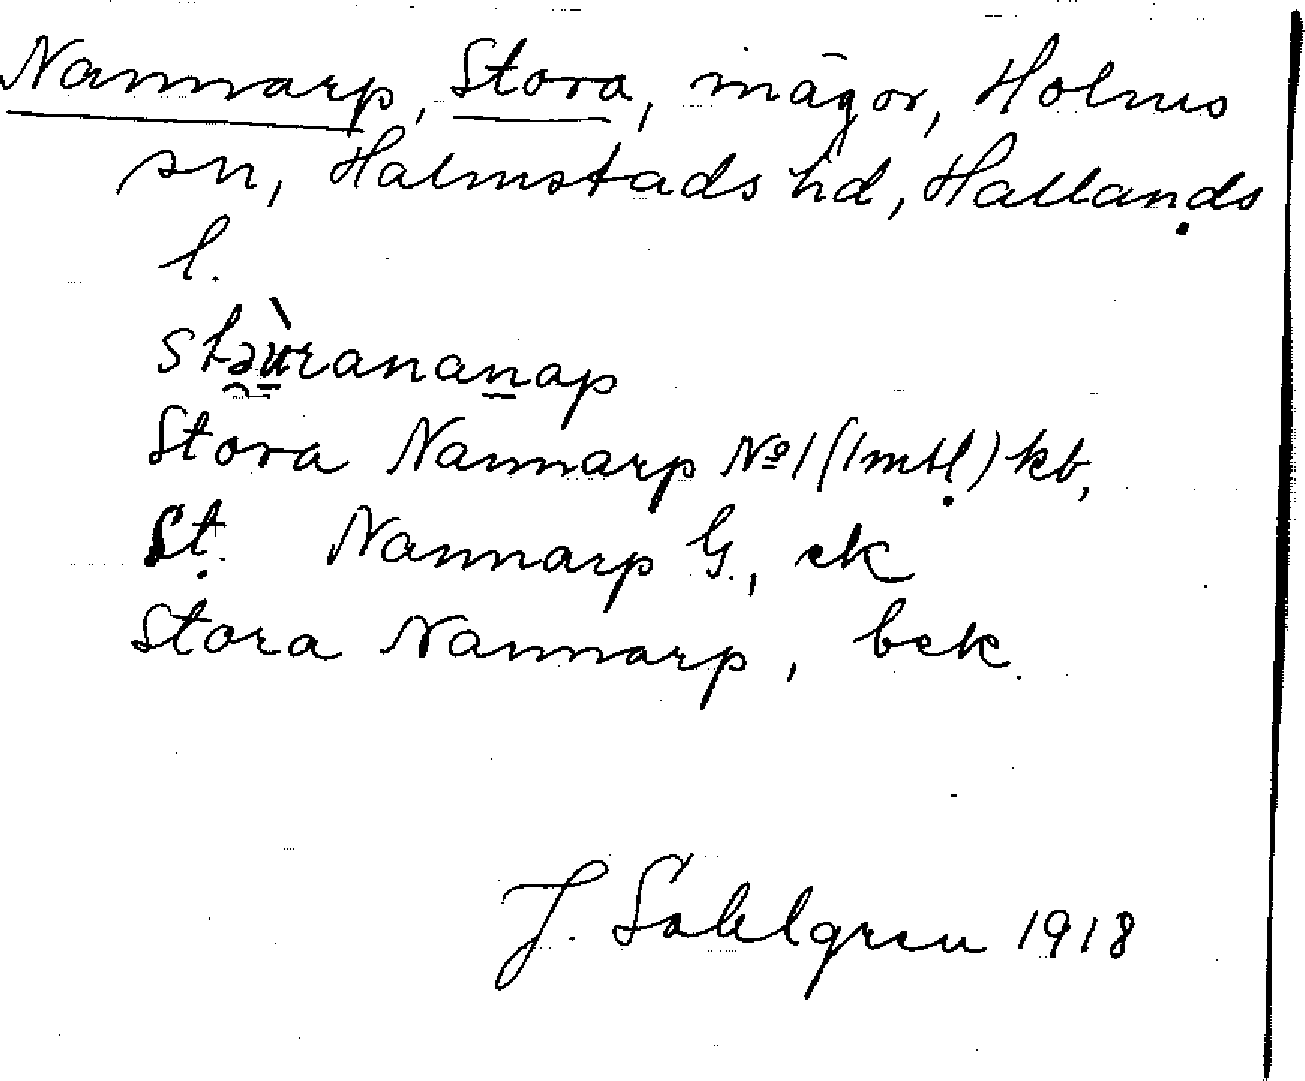 Nannarp, Stora, mägor, Holms
sn, Halmstads hd, Hallands
l.
stə̯ù̱rananap
Stora Nannarp № 1 (1 mtl) kb,
St. Nannarp G., ek
Stora Nannarp, bek.
J. Sahlgren 1918